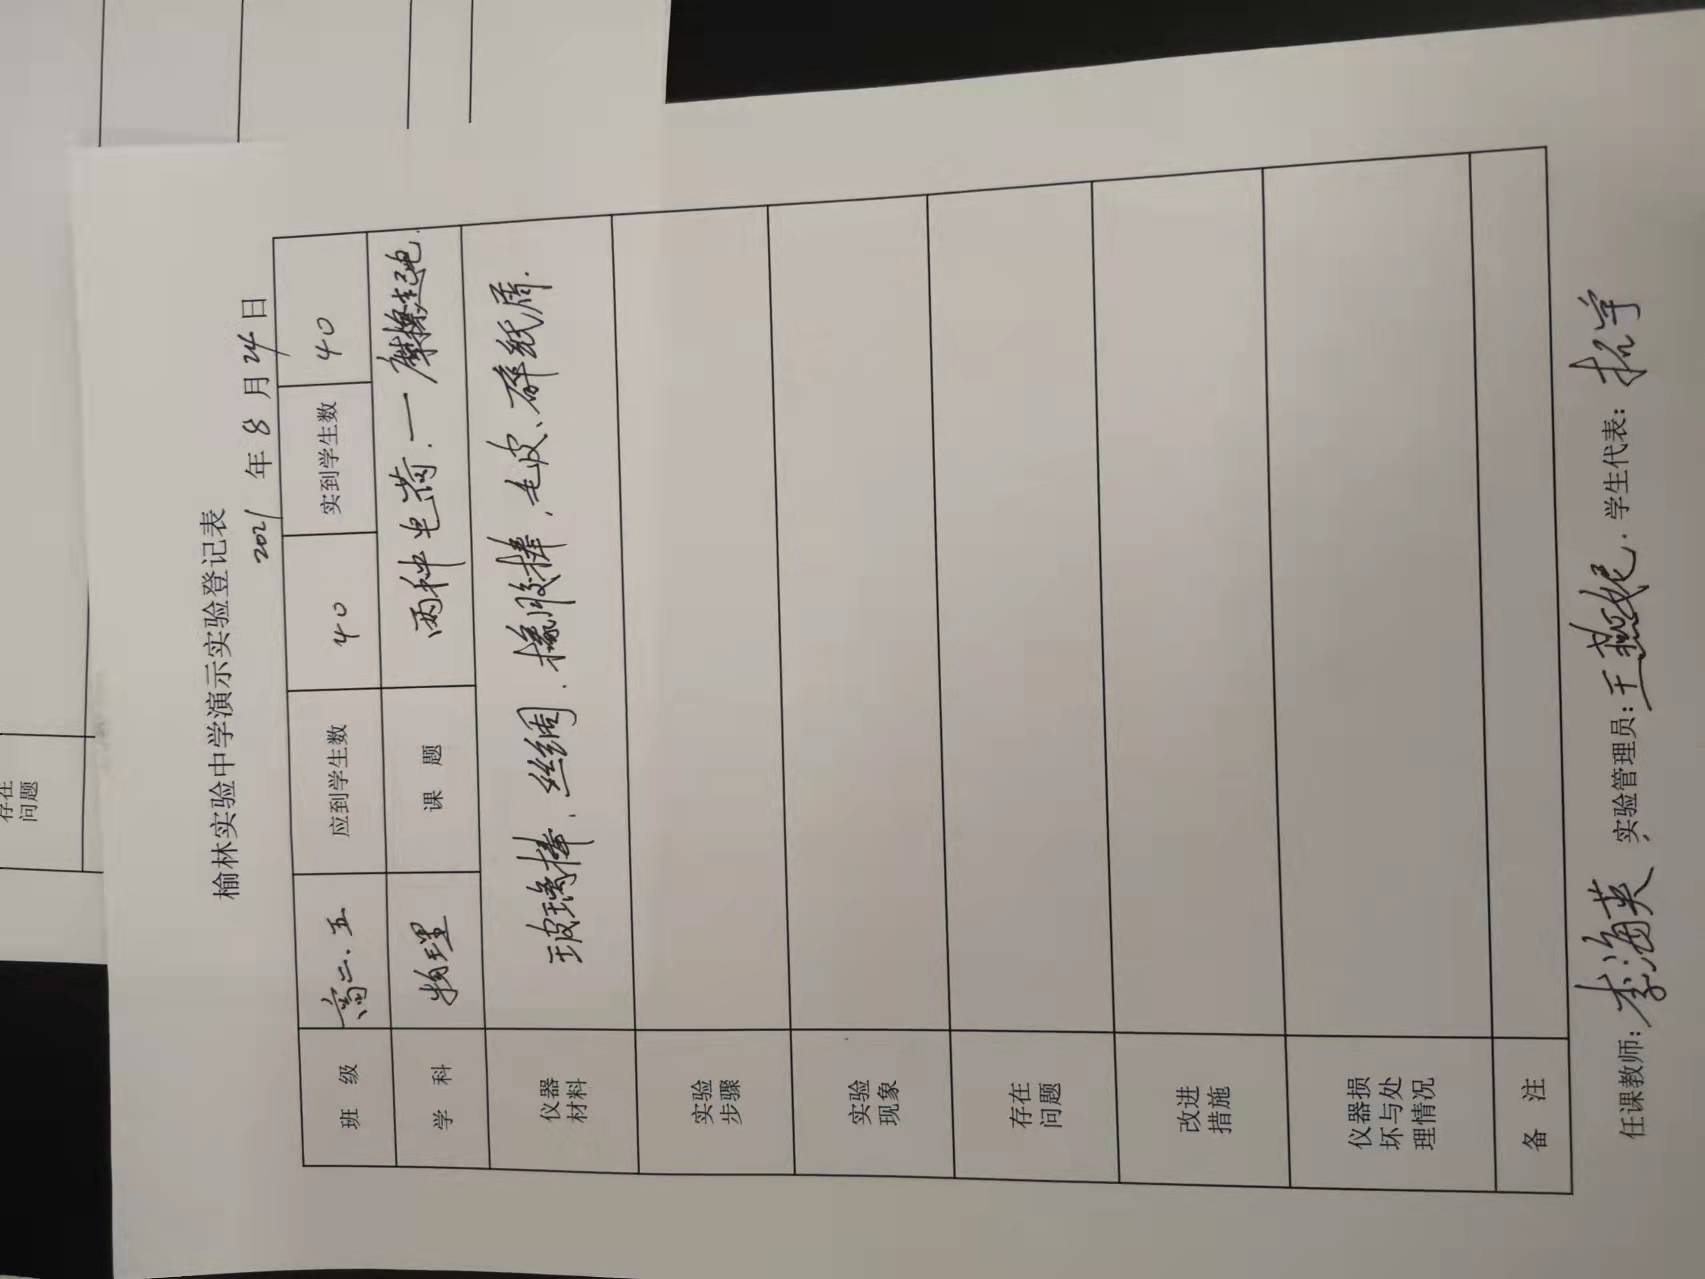 存在
问题
榆林实验中学演示实验登记表
2021年8月24日
班 级 高二.五 应到学生数 40 实到学生数 40
学 科 物理 课 题 两种电荷.—摩擦起电.
仪器
材料
玻璃棒、丝绸、橡胶棒,毛皮、碎纸屑.
实验
步骤
实验
现象
存在
问题
改进
措施
仪器损
坏与处
理情况
备 注
任课教师:李海英 实验管理员:王燕妮. 学生代表:拓宇